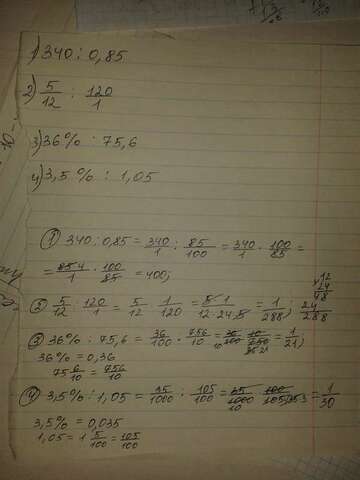 1) 340 : 0,85
2) 5/12 : 120/1
3) 36% : 75,6
4) 3,5% : 1,05
① 340 : 0,85 = 340/1 : 85/100 = 340/1 · 100/85 =
= 4/1 · 100/85 = 400;
② 5/12 : 120/1 = 5/12 · 1/120 = 5·1/12·24·5 = 1/288;
×12
24
48
24
288
③ 36% : 75,6 = 36/100 : 756/10 = 36/100 · 10/756 = 1/21;
36% = 0,36
75 6/10 = 756/10
④ 3,5% : 1,05 = 35/1000 : 105/100 = 35/1000 · 100/105 = 1/30
3,5% = 0,035
1,05 = 1 5/100 = 105/100